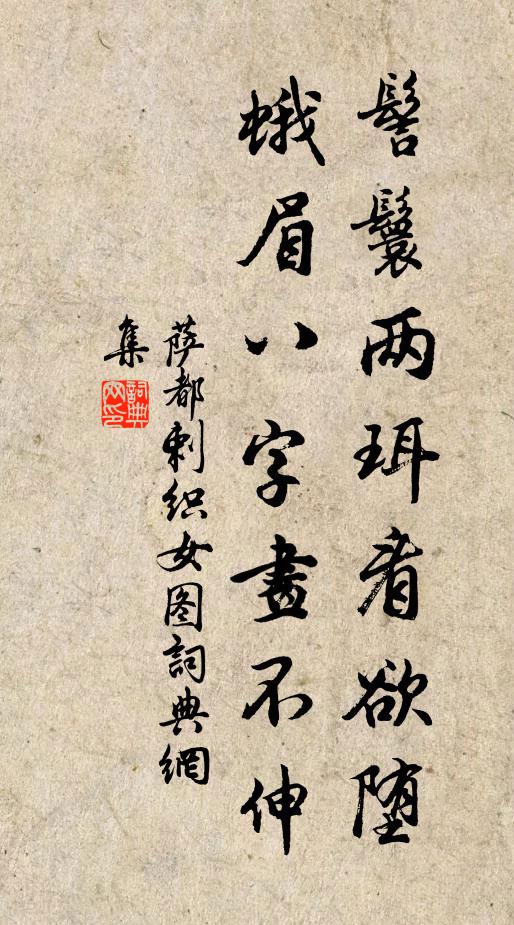 髻鬟两珥看欲堕
蛾眉八字畫不伸
萨都剌织女图詞典網
集
詞典网印